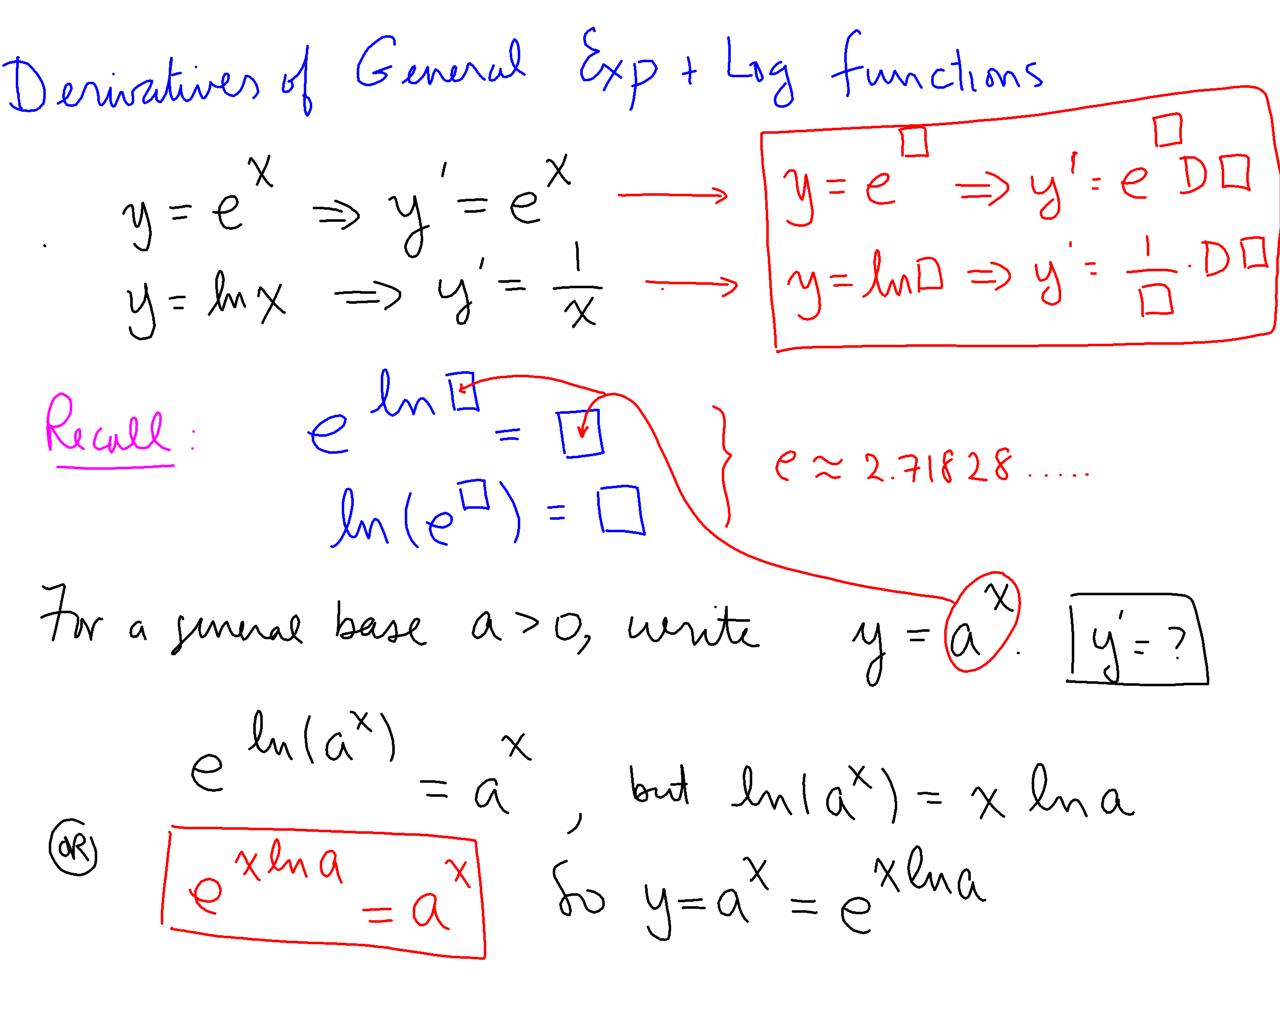 Derivatives of General Exp + Log functions
y = e^x ⇒ y' = e^x → y = e^□ ⇒ y' = e^□ D□
y = ln x ⇒ y' = 1/x → y = ln□ ⇒ y' = 1/□ · D□
Recall: e^{ln□} = □
ln(e^□) = □ } e ≈ 2.71828.....
For a general base a > 0, write y = a^x. y' = ?
e^{ln(a^x)} = a^x, but ln(a^x) = x ln a
OR e^{x ln a} = a^x So y = a^x = e^{x ln a}